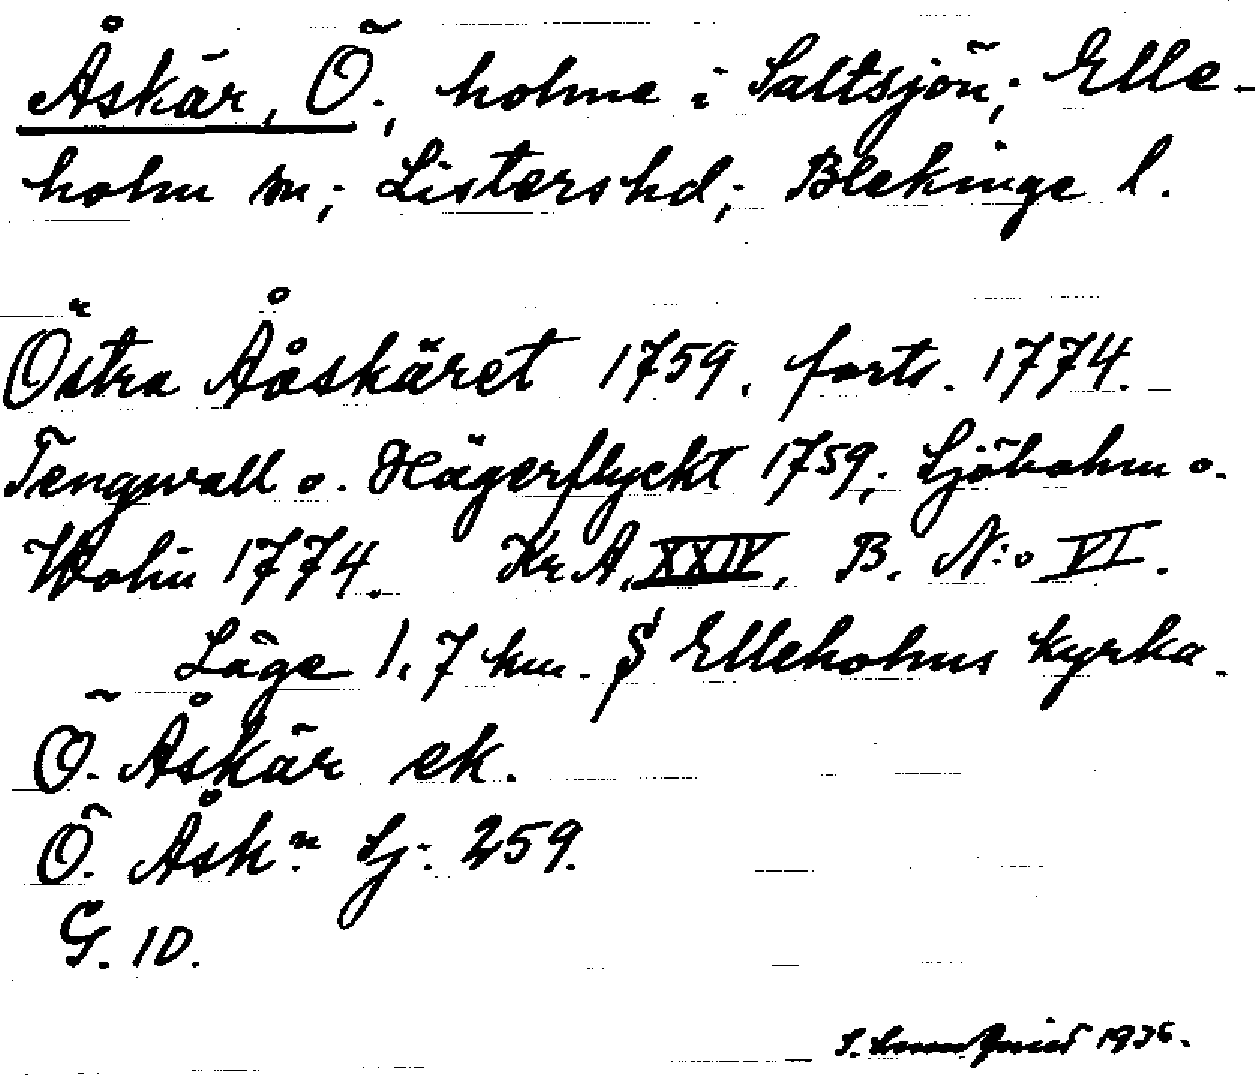 Åskär, Ö., holme i Saltsjön; Elle-
holm sn; Listers hd; Blekinge l.
Östra Ååskäret 1759. forts. 1774.
Tengwall o. Hägerflyckt 1759; Sjöholm o.
Wohu 1774. Kr A, XXIV, B. N:o VI.
Läge 1.7 km. S Elleholms kyrka.
Ö. Åskär ek.
Ö. Åskr Sj: 259.
G. 10.
1936.